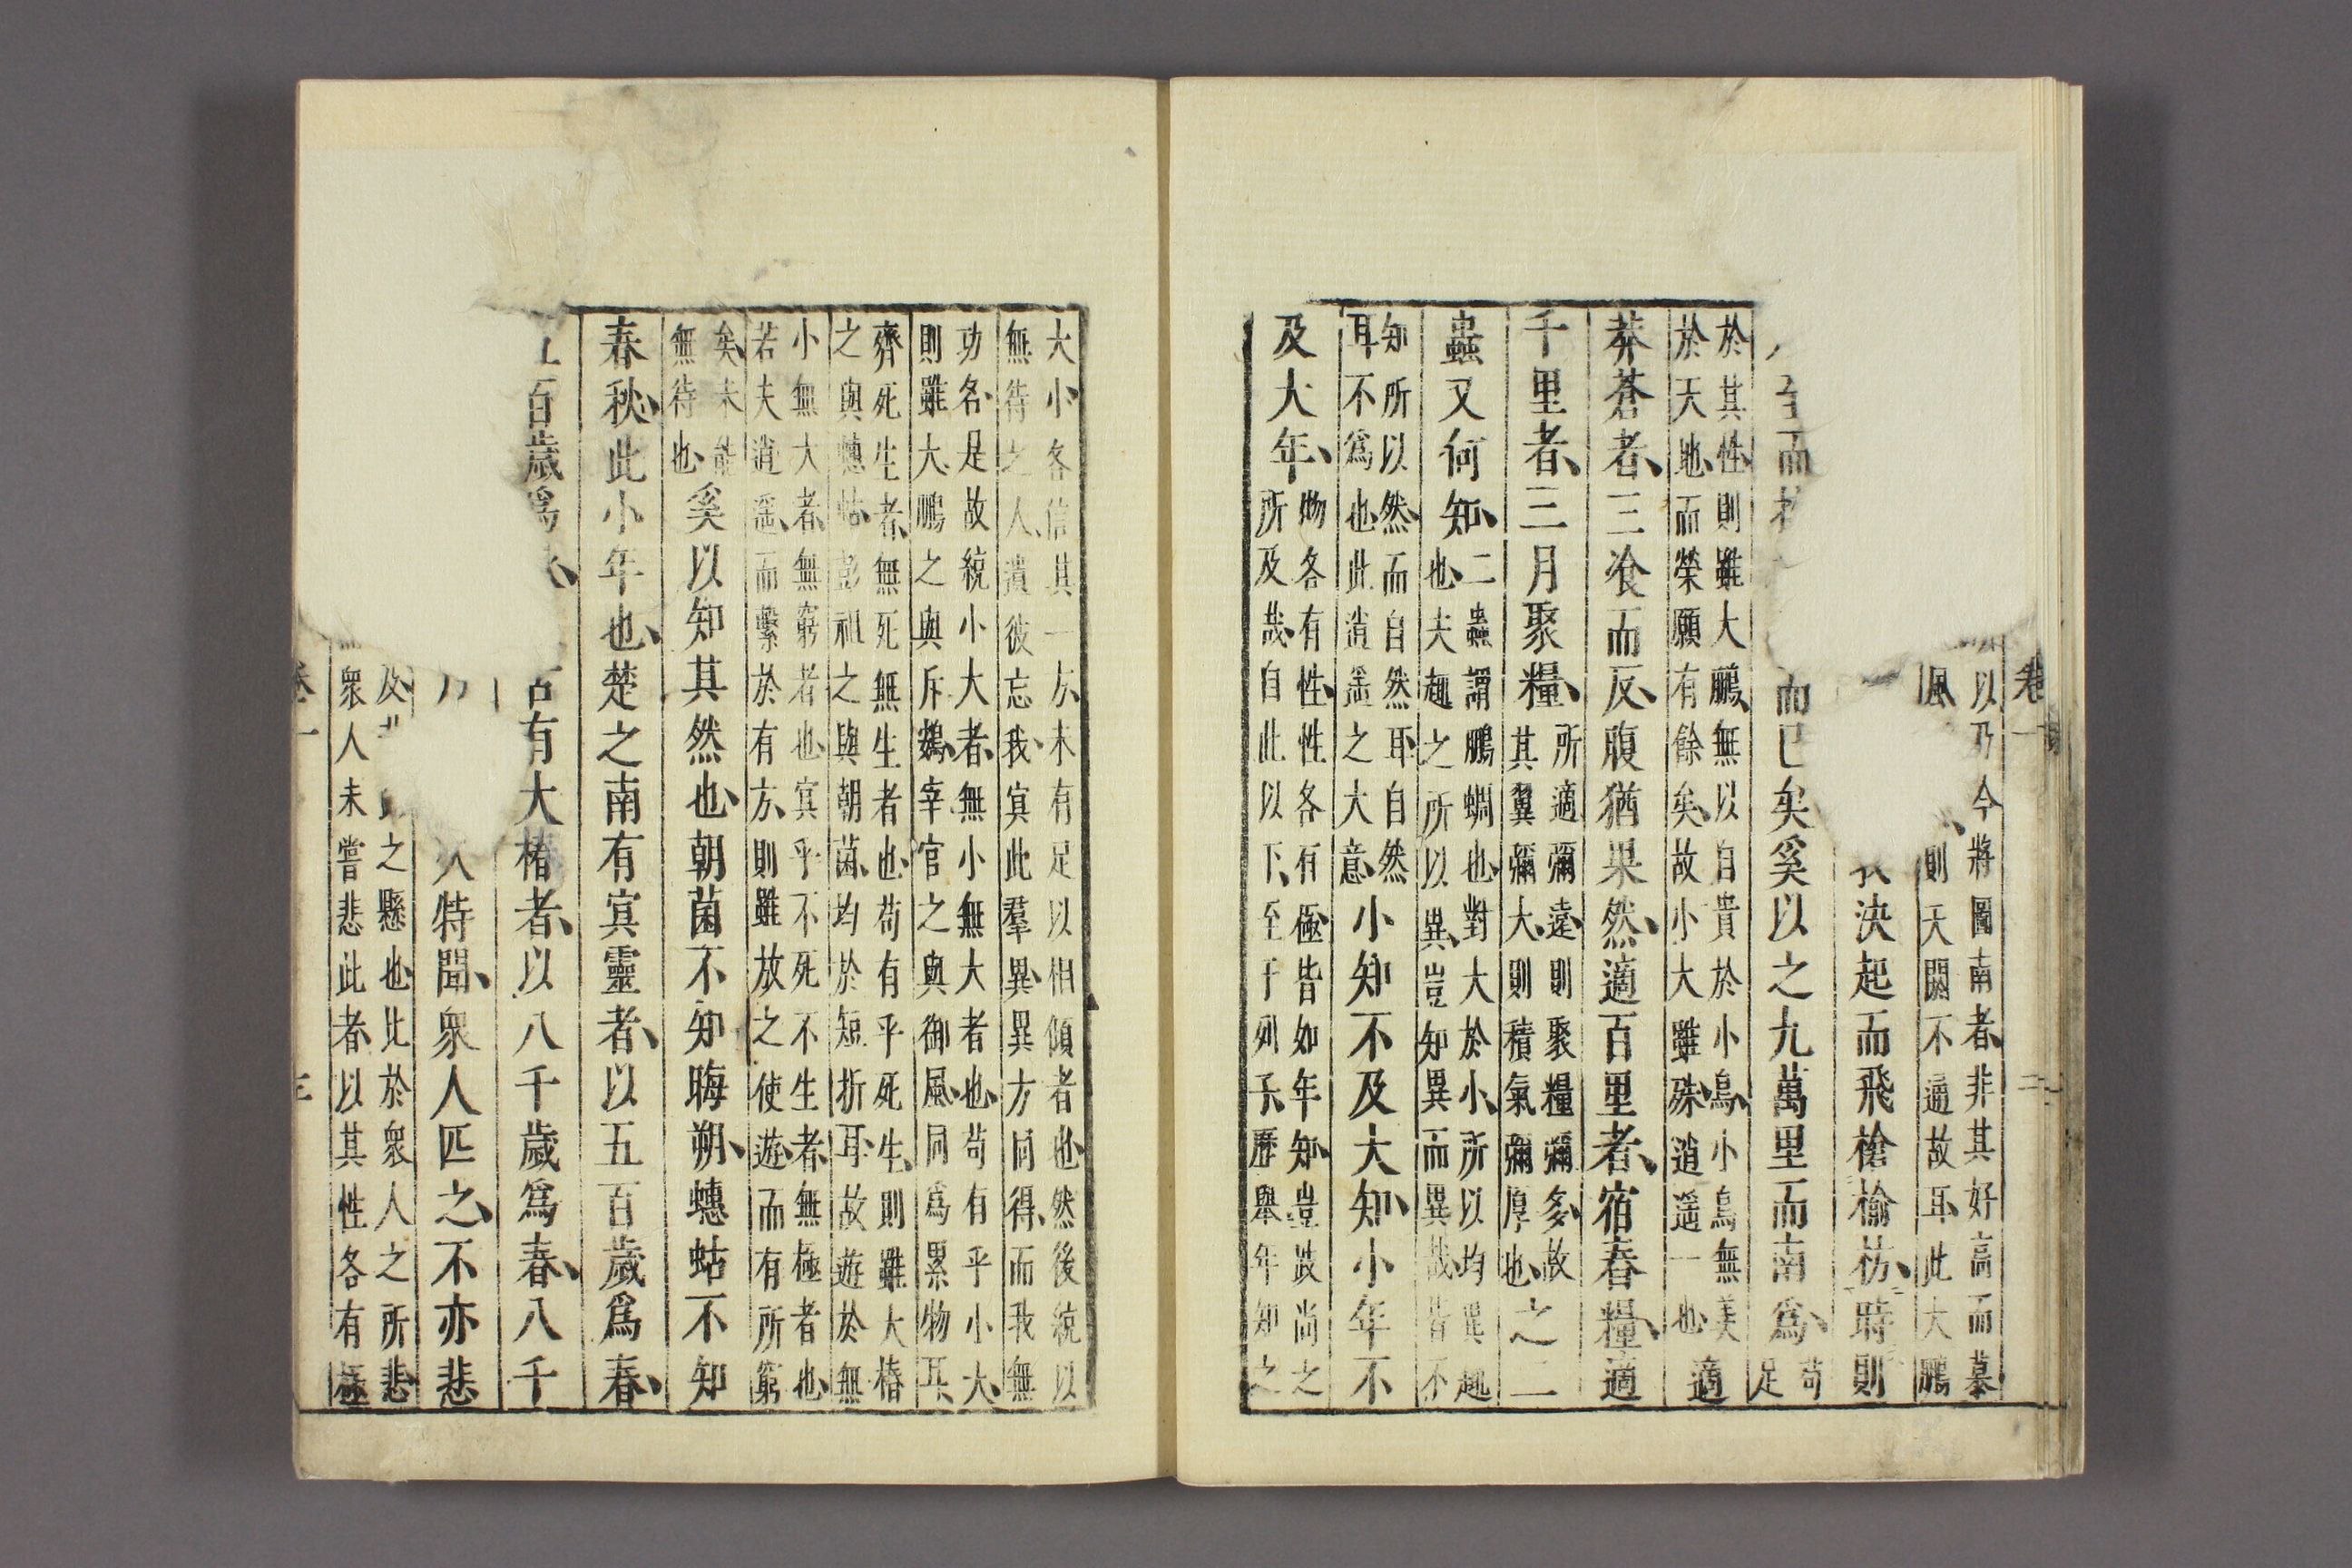 卷一 二
以乃今將圖南者非其好高而慕
風則天閼不通故耳此大鵬
決起而飛槍榆枋時則
至而而已矣奚以之九萬里而南爲
苟
足
於其性則雖大鵬無以自貴於小鳥小鳥無羡
於天地而榮願有餘矣故小大雖殊逍遥一也
適
莽蒼者三飡而反腹猶果然適百里者宿舂糧適
千里者三月聚糧
所適彌遠則聚糧彌多故
其翼彌大則積氣彌厚也
之二
蟲又何知
二蟲謂鵬蜩也對大於小所以均異趣
也夫趣之所以異豈知異而異哉皆不
知所以然而自然耳自然
耳不爲也此逍遥之大意
小知不及大知小年不
及大年
物各有性性各有極皆如年知豈跂尚之
所及哉自此以下至于列子歷舉年知之
大小各信其一方未有足以相傾者也然後統以
無待之人遺彼忘我冥此羣異異方同得而我無
功名是故統小大者無小無大者也苟有乎小大
則雖大鵬之與斥鷃宰官之與御風同爲累物耳
齊死生者無死無生者也苟有乎死生則雖大椿
之與蟪蛄彭祖之與朝菌均於短折耳故遊於無
小無大者無窮者也冥乎不死不生者無極者也
若夫逍遥而繫於有方則雖放之使遊而有所窮
矣未能
無待也
奚以知其然也朝菌不知晦朔蟪蛄不知
春秋此小年也楚之南有冥靈者以五百歲爲春
百歲爲有大椿者以八千歲爲春八千
特聞衆人匹之不亦悲
及之懸也比於衆人之所悲
衆人未嘗悲此者以其性各有極
卷一 三